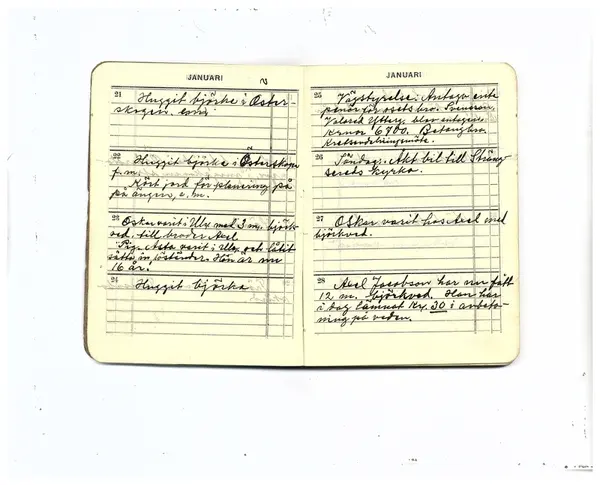 JANUARI
21
Huggit björke i Öster-
skogen. em.
22
Huggit björke i Österskogen
f.m.
Kört jord för planering på
på ängen, e.m.
23 Oskar varit i Ulv. med 3 m. björk-
ved. till broder Axel
Pig. Asta varit i Ulv. och låtit
sätta in löständer. Hon är nu
16 år.
24
Huggit björke
JANUARI
25
Vägstyrelse: Antagо ente
penör för osets bro. Svensson,
Ytterg. blev antagen.
Kronor 6700. Betongbro.
Kretsindelningsmöte.
26
Söndag. Åkt bil till Sträng
sereds kyrka.
27
Oskar varit hos Axel med
björkved.
28
Axel Jacobson har nu fått
12 m. björkved. Han har
i dag lämnat Kr. 30 i avbeta-
ning på veden.